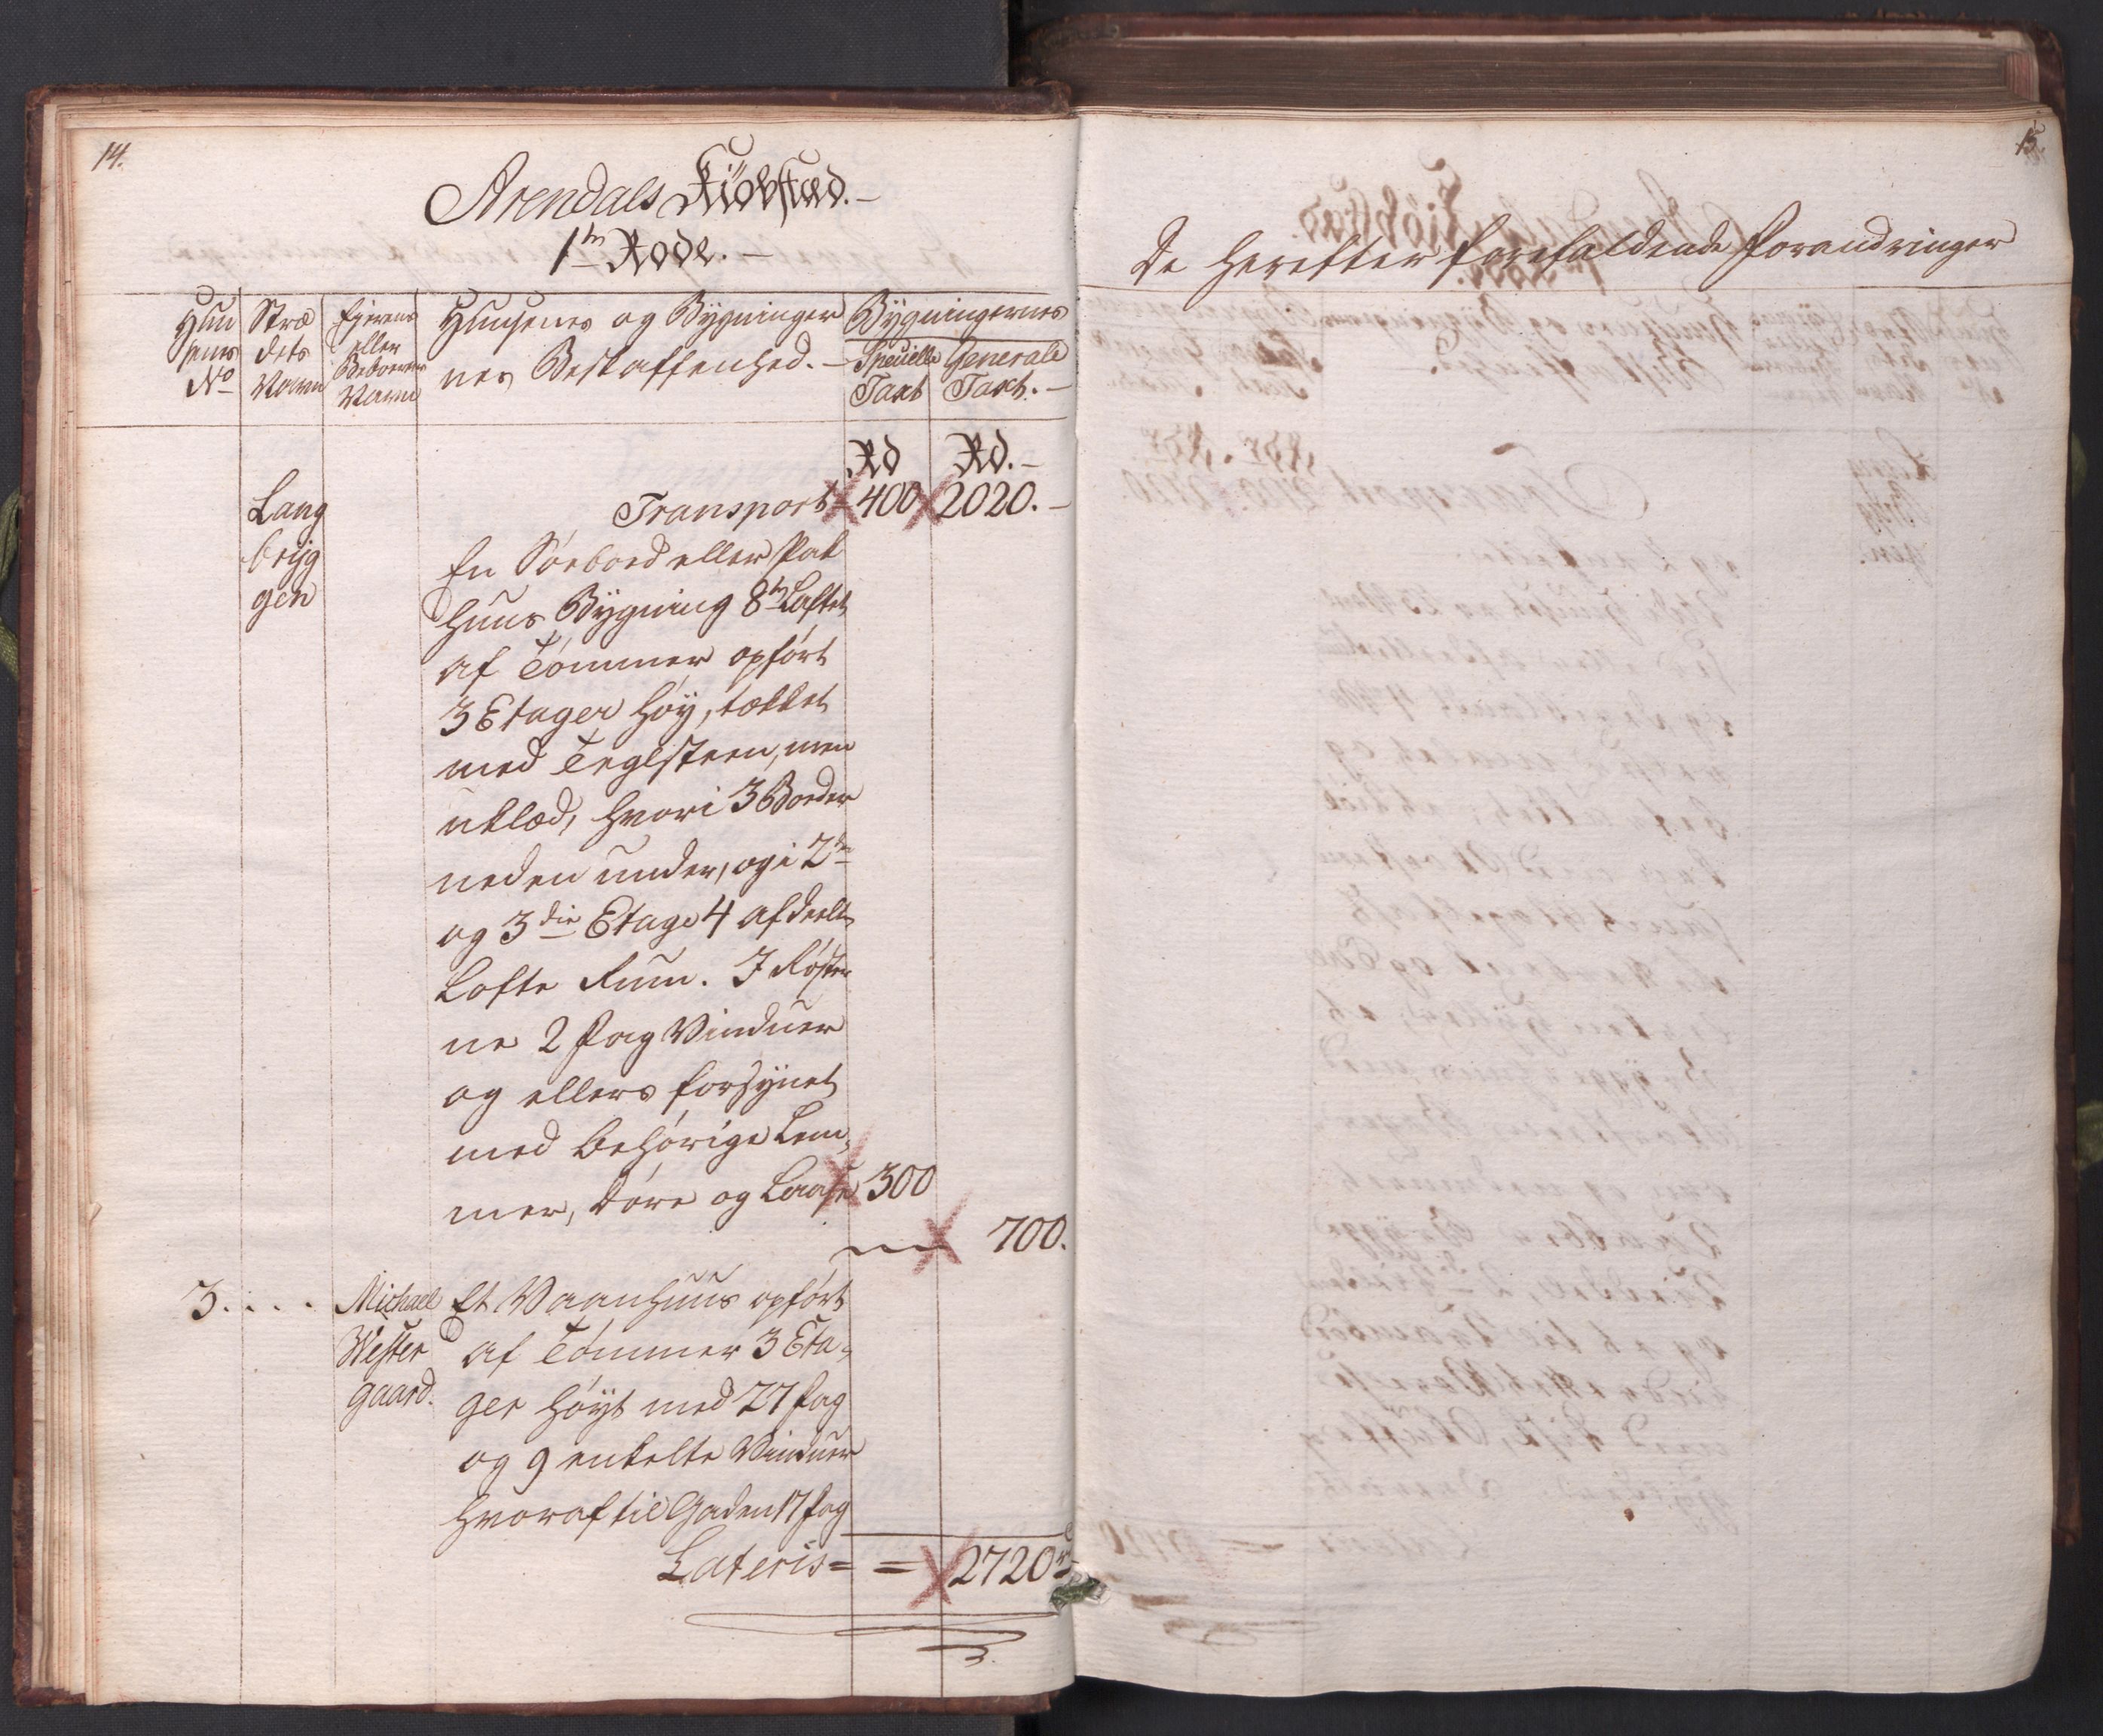 14.
Arendals Kiöbstæd.-
1te Rode.-
Huu
senes
No
Stræ
dets
Navn
Ejerens
eller
Beboerens
Navn
Huusenes og Bygninger
nes Beskaffenhed.-
Bygningernes
Specielle Taxt
Generale Taxt.-
Rd Rd.-
Lang
bryg
gen
Transport 400 2020.-
En Söebod eller Pak
Huus Bygning 8te Laftet
af Tömmer opfört
3 Etager höy, tækket
med Teglsteen, men
uklæd, hvori 3 Boder
neden under, og i 2den
og 3die Etage 4 afdeelte
Lofte Rum. I Röste
ne 2 Fag Vinduer
og ellers forsynet
med behörige Lem-
mer, Döre og Laase 300
700.
3.... Michael
Wester
gaard.
Et Vaanhuus opfört
af Tömmer 3 Eta-
ger höyt med 27 fag
og 9 enkelte Vinduer
hvoraf til Gaden 17 fag
Lateris = = 2720 rd
15.
De herefter forefaldende Forandringer